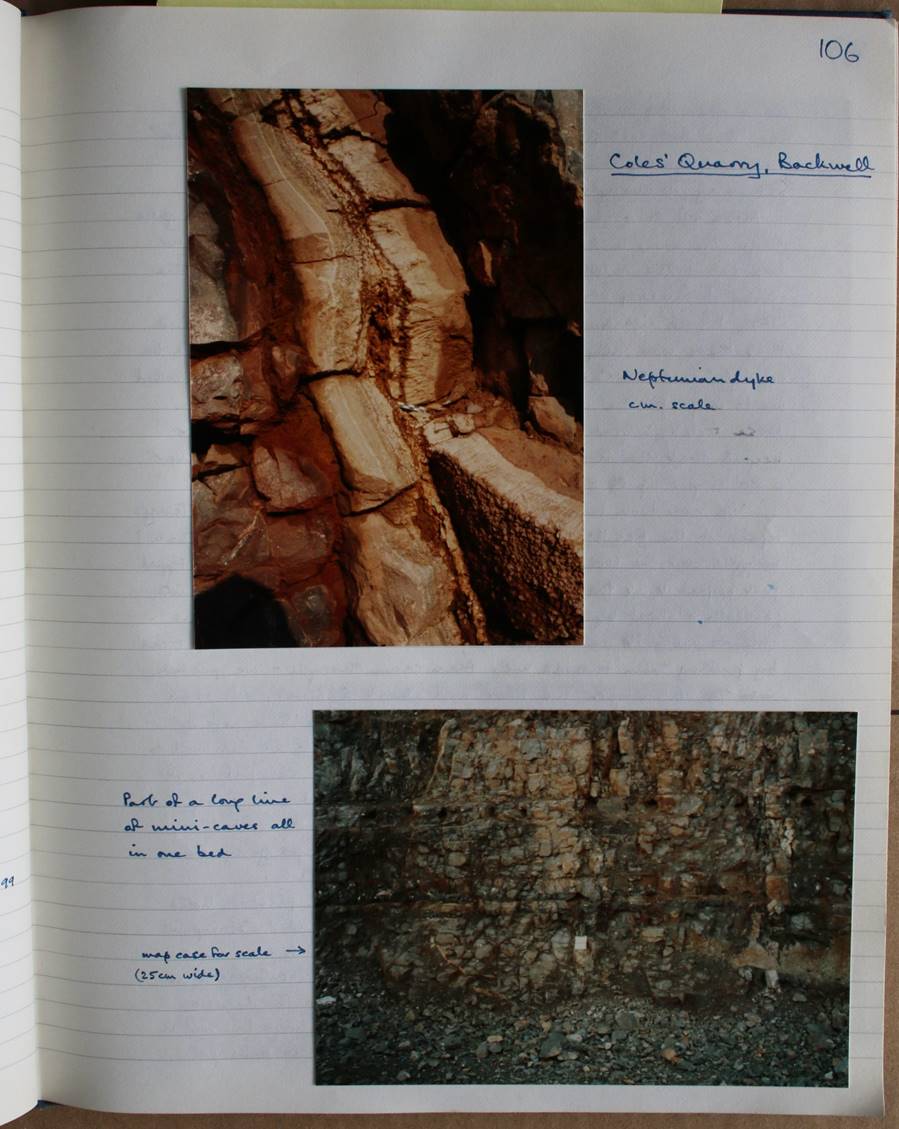 106
Coles' Quarry, Backwell
Neptunian dyke
cm. scale
Part of a long line
of mini-caves all
in one bed
99
map case for scale →
(25cm wide)